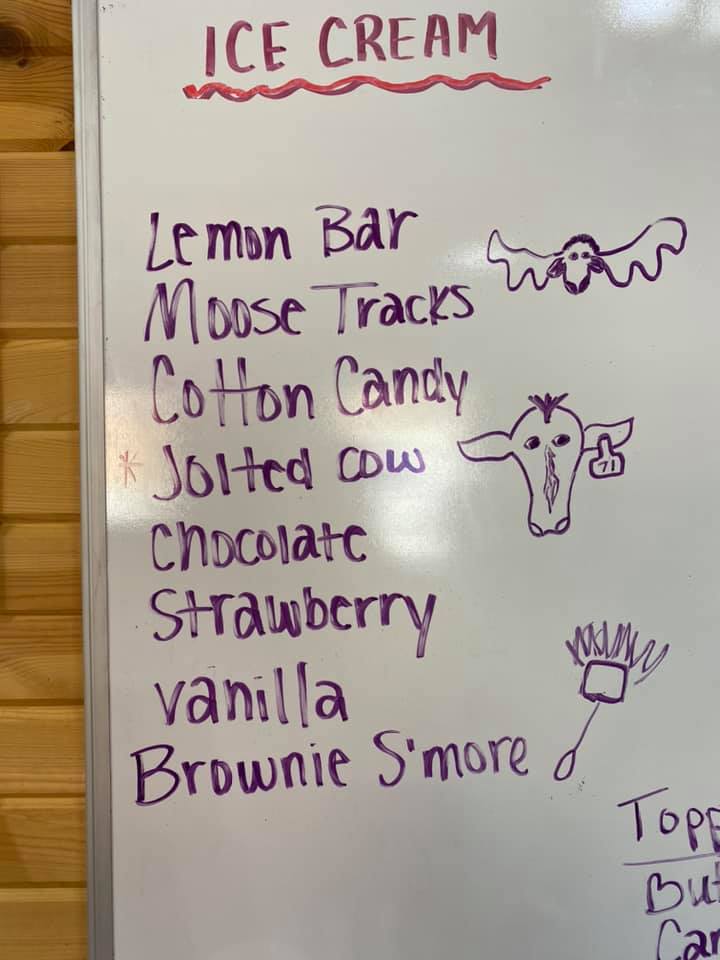 ICE CREAM
Lemon Bar
Moose Tracks
Cotton Candy
* Jolted cow
71
chocolate
Strawberry
vanilla
Brownie S'more